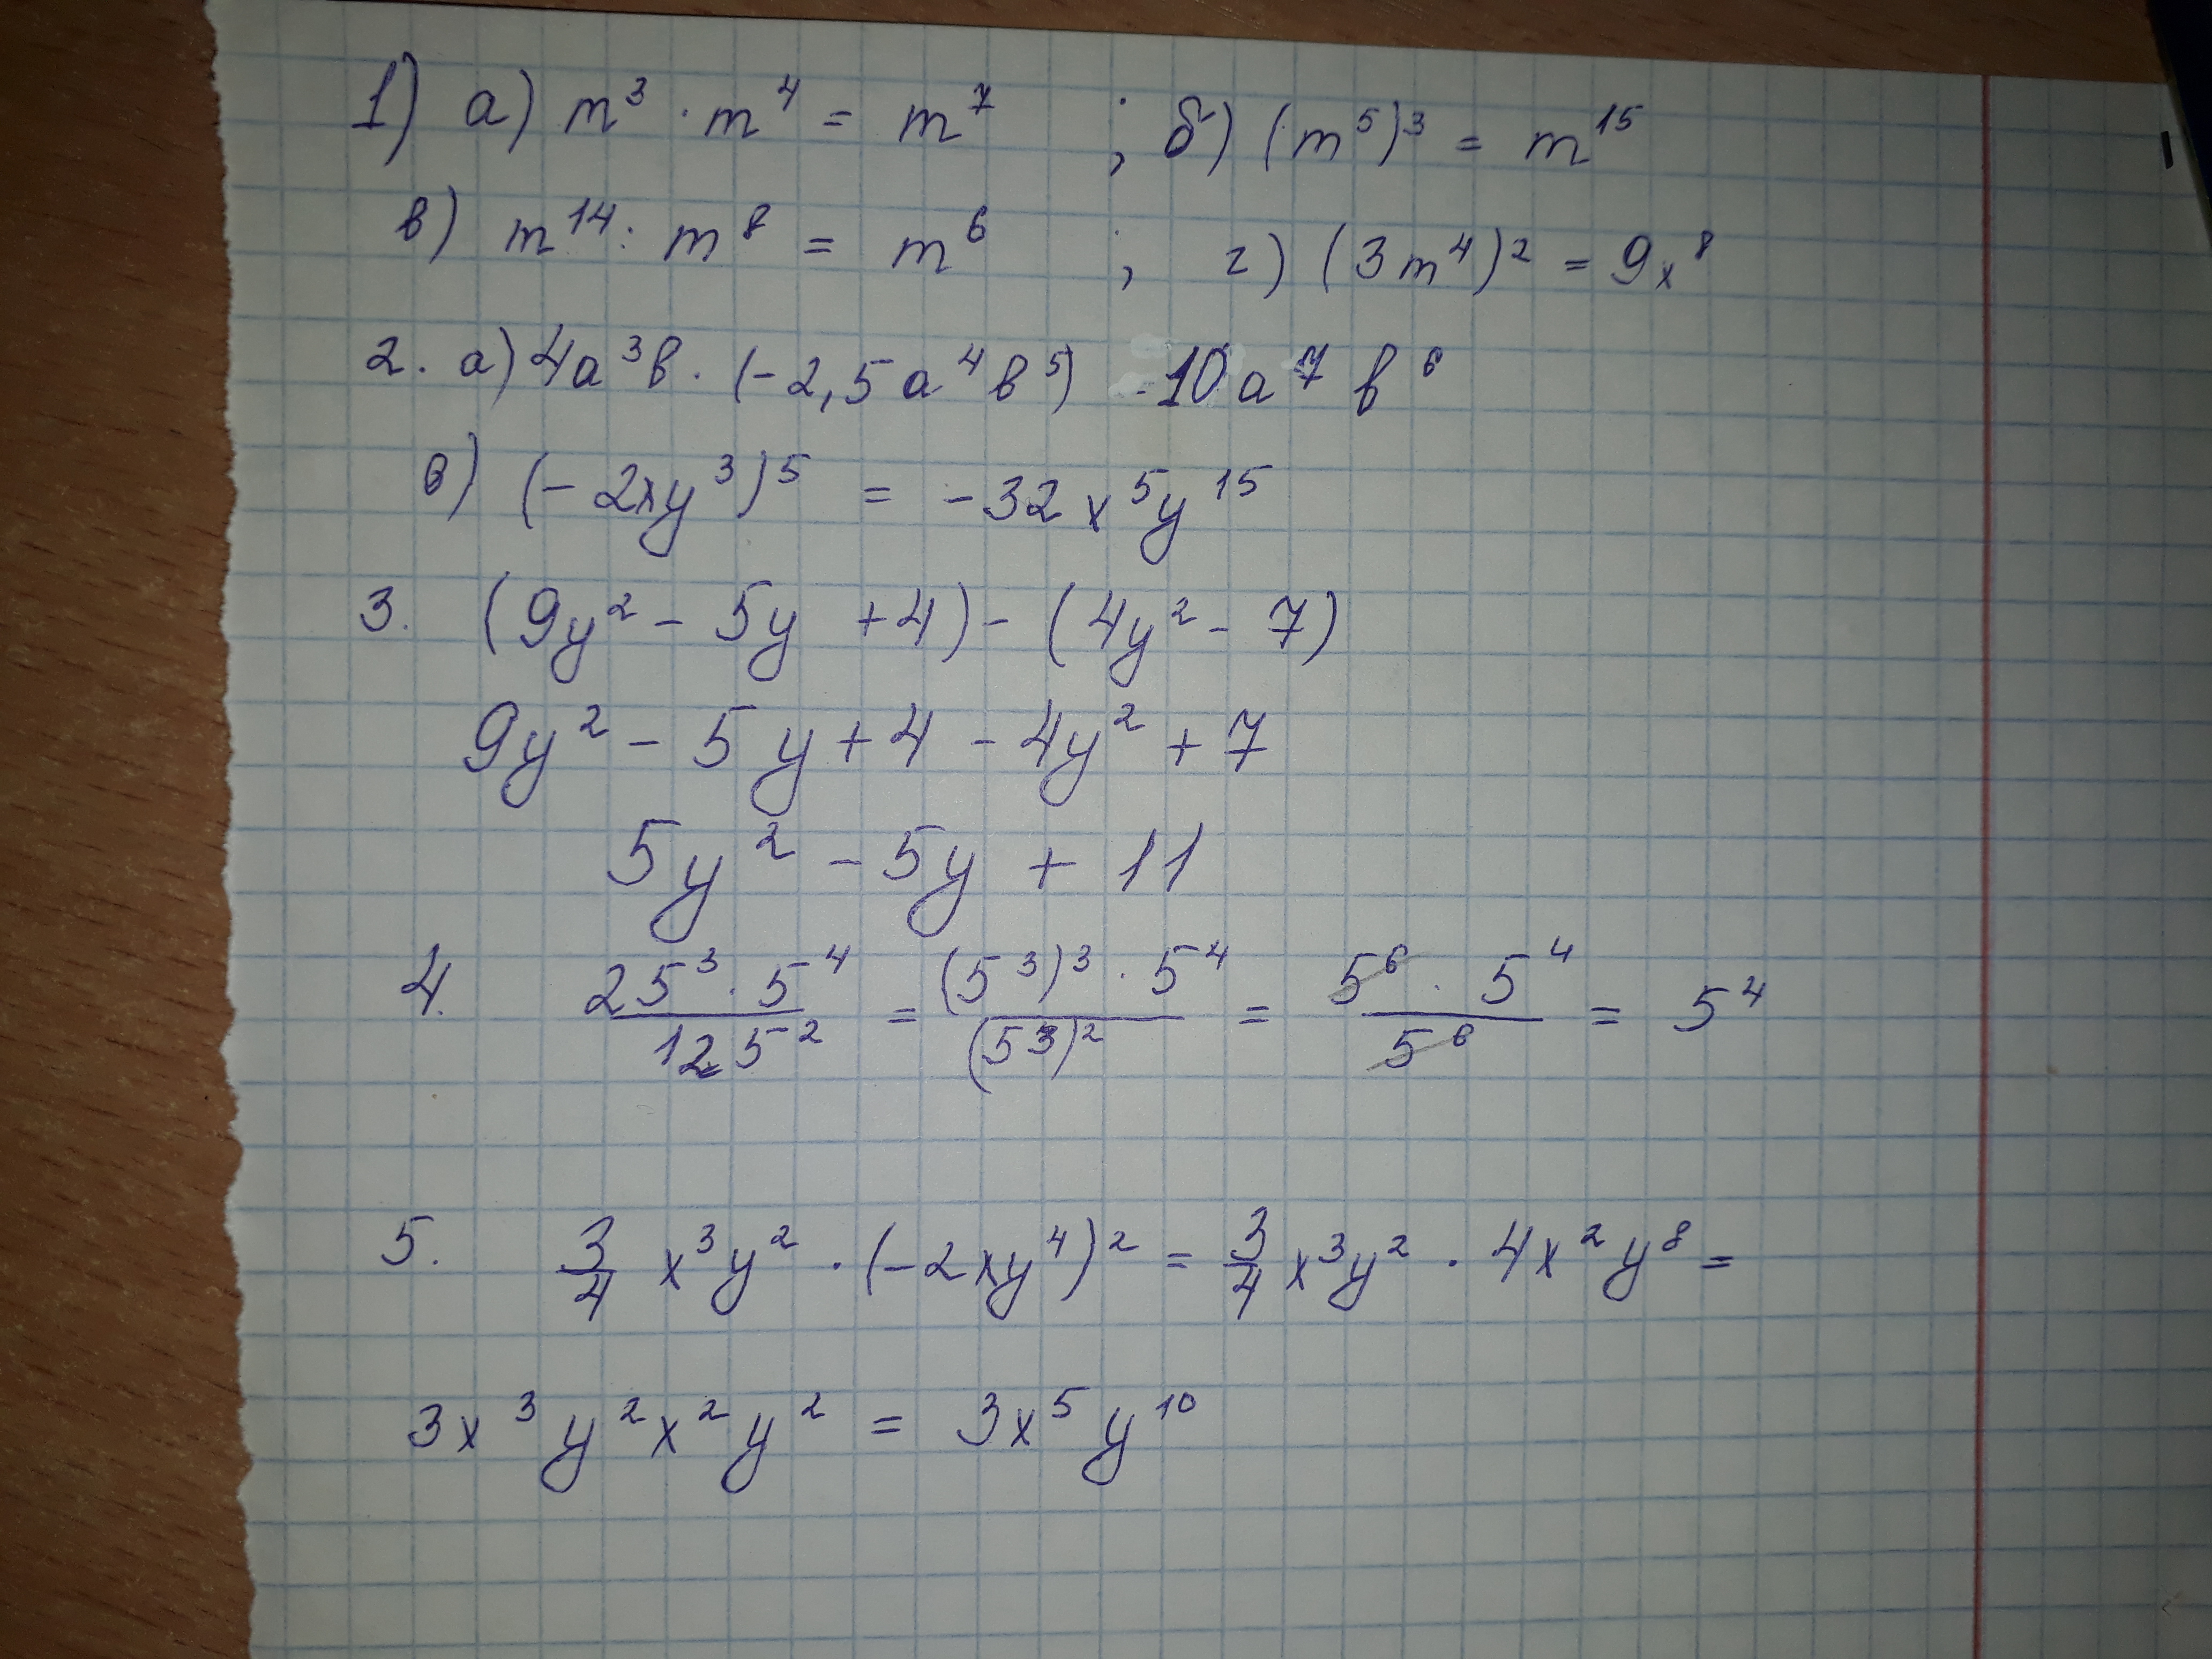 1) а) m³ · m⁴ = m⁷ ; б) (m⁵)³ = m¹⁵
в) m¹⁴ : m⁸ = m⁶ ; г) (3m⁴)² = 9x⁸
2. а) 4a³b · (-2,5a⁴b⁵) -10a⁷b⁶
в) (-2xy³)⁵ = -32x⁵y¹⁵
3. (9y² - 5y + 4) - (4y² - 7)
9y² - 5y + 4 - 4y² + 7
5y² - 5y + 11
4. 25³ · 5⁴ / 125² = (5³)³ · 5⁴ / (5³)² = 5⁶ · 5⁴ / 5⁶ = 5⁴
5. 3/4 x³y² · (-2xy⁴)² = 3/4 x³y² · 4x²y⁸ =
3x³y²x²y² = 3x⁵y¹⁰